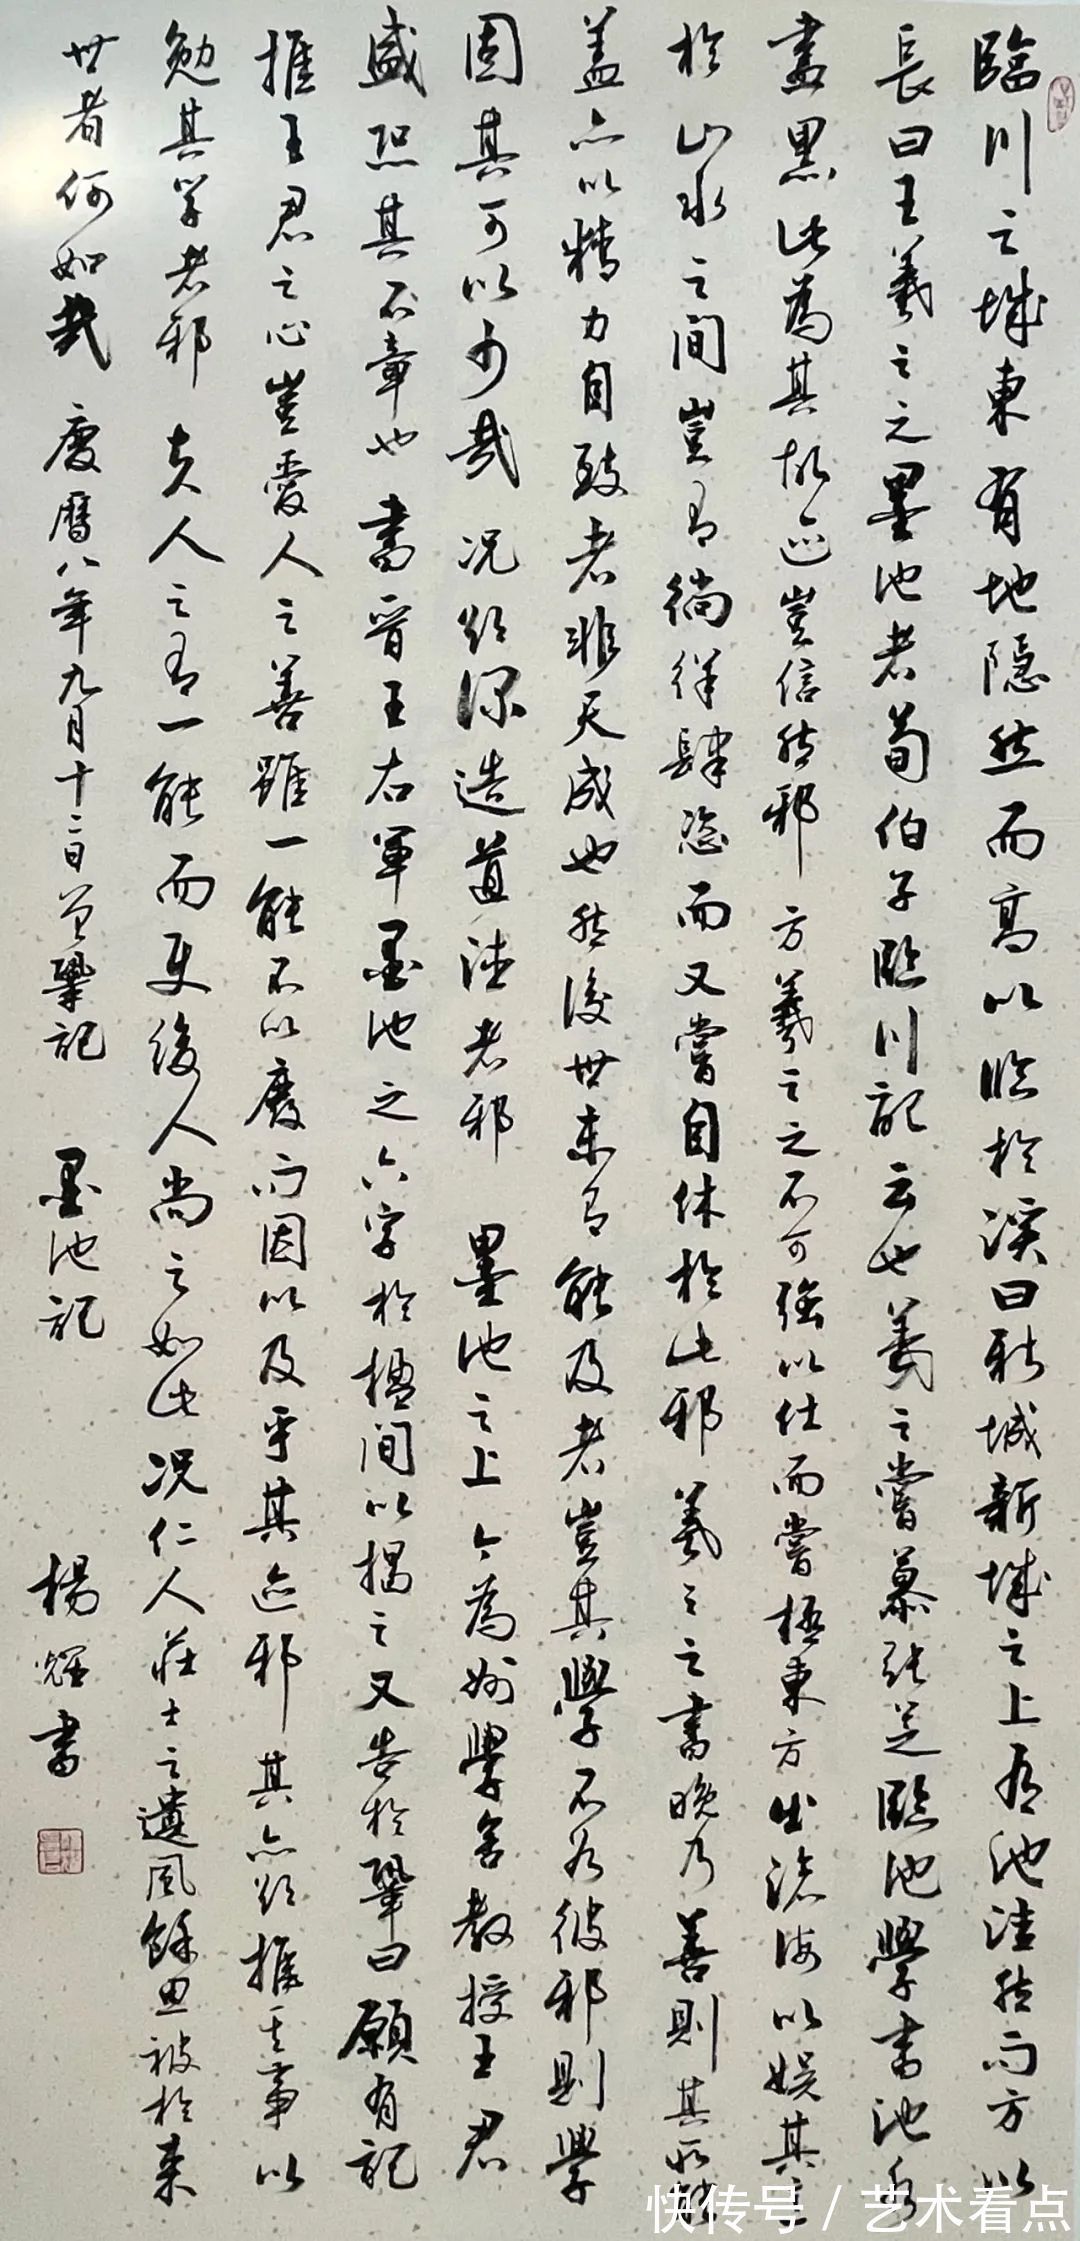 臨川之城東有地隱然而高以臨於溪曰新城新城之上有池洼然而方以
長曰王羲之之墨池者荀伯子臨川記云也羲之嘗慕張芝臨池學書池水
盡黑此為其故迹豈信然邪 方羲之之不可強以仕而嘗極東方出滄海以娛其意
於山水之間豈有徜徉肆恣而又嘗自休於此邪 羲之之書晚乃善則其所能
蓋亦以精力自致者非天成也然後世未有能及者豈其學不如彼邪則學
固其可以少哉 況欲深造道德者邪 墨池之上今為州學舍教授王君
盛恐其不章也 書晉王右軍墨池之六字於楹間以揭之又告於鞏曰願有記
推王君之心豈愛人之善雖一能不以廢而因以及乎其迹邪 其亦欲推其事以
勉其學者邪 夫人之有一能而使後人尚之如此況仁人莊士之遺風餘思被於來
世者何如哉 慶曆八年九月十二日曾鞏記 墨池記 楊 書
快传号 / 艺术看点